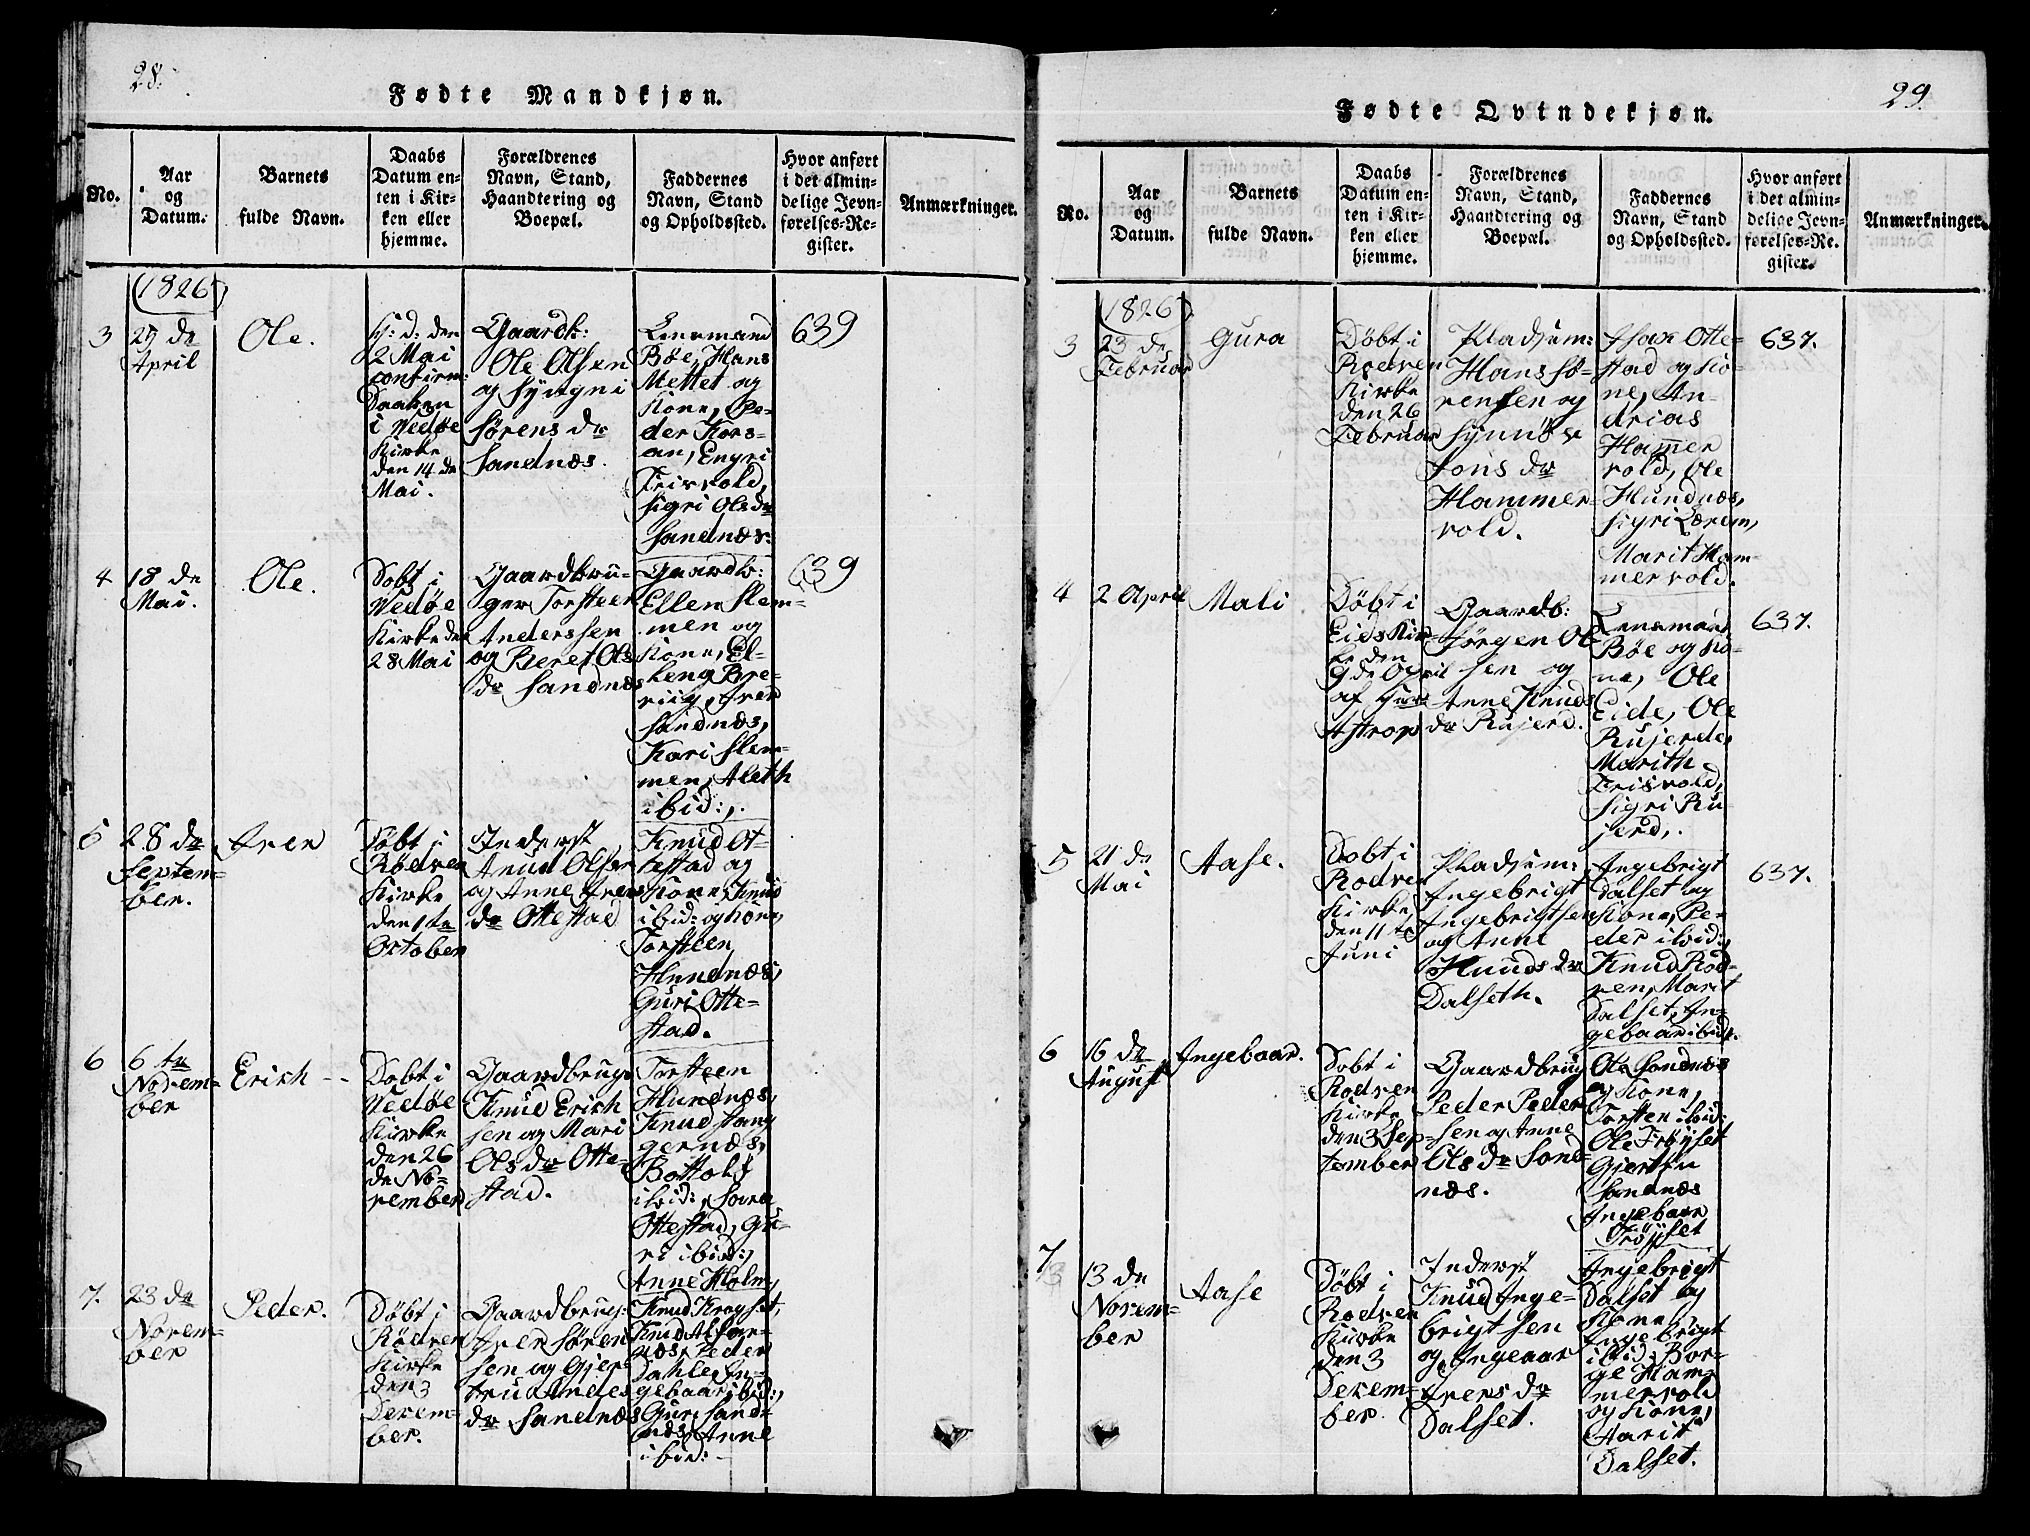 28.
Fødte Mandkjøn.
No.
Aar
og
Datum.
Barnets
fulde Navn.
Daabs
Datum en-
ten i Kir-
ken eller
hjemme.
Forældrenes
Navn, Stand,
Haandtering og
Boepæl.
Faddernes
Navn, Stand
og Opholdssted.
Hvor anført
i det almin-
delige Jevn-
førelses-Re-
gister.
Anmærkninger.
(1826)
3
de
April
Ole.
H: d: den
2 Mai
confirm:
Daaben
i Wedøe
Kirke
den 14 de
Mai.
Gaardb:
Ole Olsen
og Syngni
Sørens dr
Sandnæs.
Lensmand
Bøe, Hans
Mettet og
Kone, Pe-
der Kors-
an, Engri
Frisvold,
Sigri Ols dr
Sandnæs:
639
4
18 de
Mai.
Ole.
Døbt i
Wedøe
Kirke den
28 Mai
Gaardbru-
ger Torsteen
Anderssen
og Beret Ols
dr Sandnæs
Gaardb:
Ellen Slem-
men og
Kone, El-
ling
Iver
Sandnæs,
Kari Slem-
men, Aleth
ibid:,
639
5
28 de
Septem-
ber.
Iver
Døbt i
Rødven
Kirke
den 1te
October
Inderst
Knud Olsen
og Anne Ivers
dr Ottestad
Knud Ot-
testad og
Kone, Knud
ibid: og Kone,
Torsteen
Hundnæs,
Guri Otte-
stad.
6
6 te
Novem-
ber
Erich --
Døbt i
Wedøe
Kirke
den 26
de No-
vember
Gaardbrug:
Knud Erich
sen og Mari
Ols dr Otte-
stad.
Torsteen
Hundnæs,
Knud Stan
gernæs,
Bottolf
ibid:,
Ottestad, Gu-
ri ibid:,
Anne Holm,
7.
23 de
Novem-
ber
Peder.
Døbt i
Rødven
Kirke
den 3
Decem-
ber.
Gaardbrug:
Iver Søren
sen og Gjer-
tru Andes
dr Sandnæs
Knud Krogset,
Knud
næs, Peder
Dahle, In-
gebaar ibid:,
Guri Sand-
næs, Anne
ibid: -
29.
Fødte Qvindekjøn.
No.
Aar
og
Datum.
Barnets
fulde Navn.
Daabs
Datum en-
ten i Kir-
ken eller
hjemme.
Forældrenes
Navn, Stand,
Haandtering og
Boepæl.
Faddernes
Navn, Stand
og Opholdssted.
Hvor anført
i det almin-
delige Jevn-
førelses-Re-
gister.
Anmærkninger.
(1826)
3
23 de
Februar
Gura
Døbt i
Rødven
Kirke
den 26
Februar
Pladsem:
Hans Sø-
rensen og
Synnøv
Jons dr
Hammer-
vold.
Isax Otte-
stad og Ko-
ne, An-
drias
Hammer
vold, Ole
Hundnæs,
Sigri Lærem,
Marit Ham-
mervold.
637.
4
2 April
Mali
Døbt i
Eids Kir-
ke den
9 de April
af Hur
Astrop
Gaardb:
Jørgen Ol-
sen og
Anne Knuds
dr Rujerd.
Lensmand
Bøe og Ko-
ne, Ole
Eide, Ole
Rujerde,
Marith
Frisvold,
Sigri Ru-
jerd,.
637.
5
21 de
Mai
Aase.
Døbt i
Rodven
Kirke
den 11 te
Juni
Pladsem:
Ingebrigt
Ingebrigtsen
og Anne
Knuds dr
Dalseth.
Ingebrigt
Dalset og
Kone, Pe-
der ibid:,
Knud Rød-
ven, Marit
Dalset, In-
gebaar ibid:
637.
6
16 de
August
Ingebaar.
Døbt i
Rodven
Kirke
den 3 Sep-
tember
Gaardbrug
Peder Peder
sen og Anne
Ols dr Sand-
næs.
Ole Sandnæs
og Kone,
Torsten ibid:
Ole Frøyset
Gjertru
Sandnæs
Ingebaar
Frøyset
7
13 de
Novem-
ber
Aase
Døbt i
Rodven
Kirke
den 3
Decem-
ber.
Inderst
Knud Inge-
brigtsen
og Ingeaar
Ivers dr
Dalset.
Ingebrigt
Dalset og
Kone,
Ingebrigt
ibid: Bør-
ge Ham-
mervold
og Kone,
Marit
Dalset.